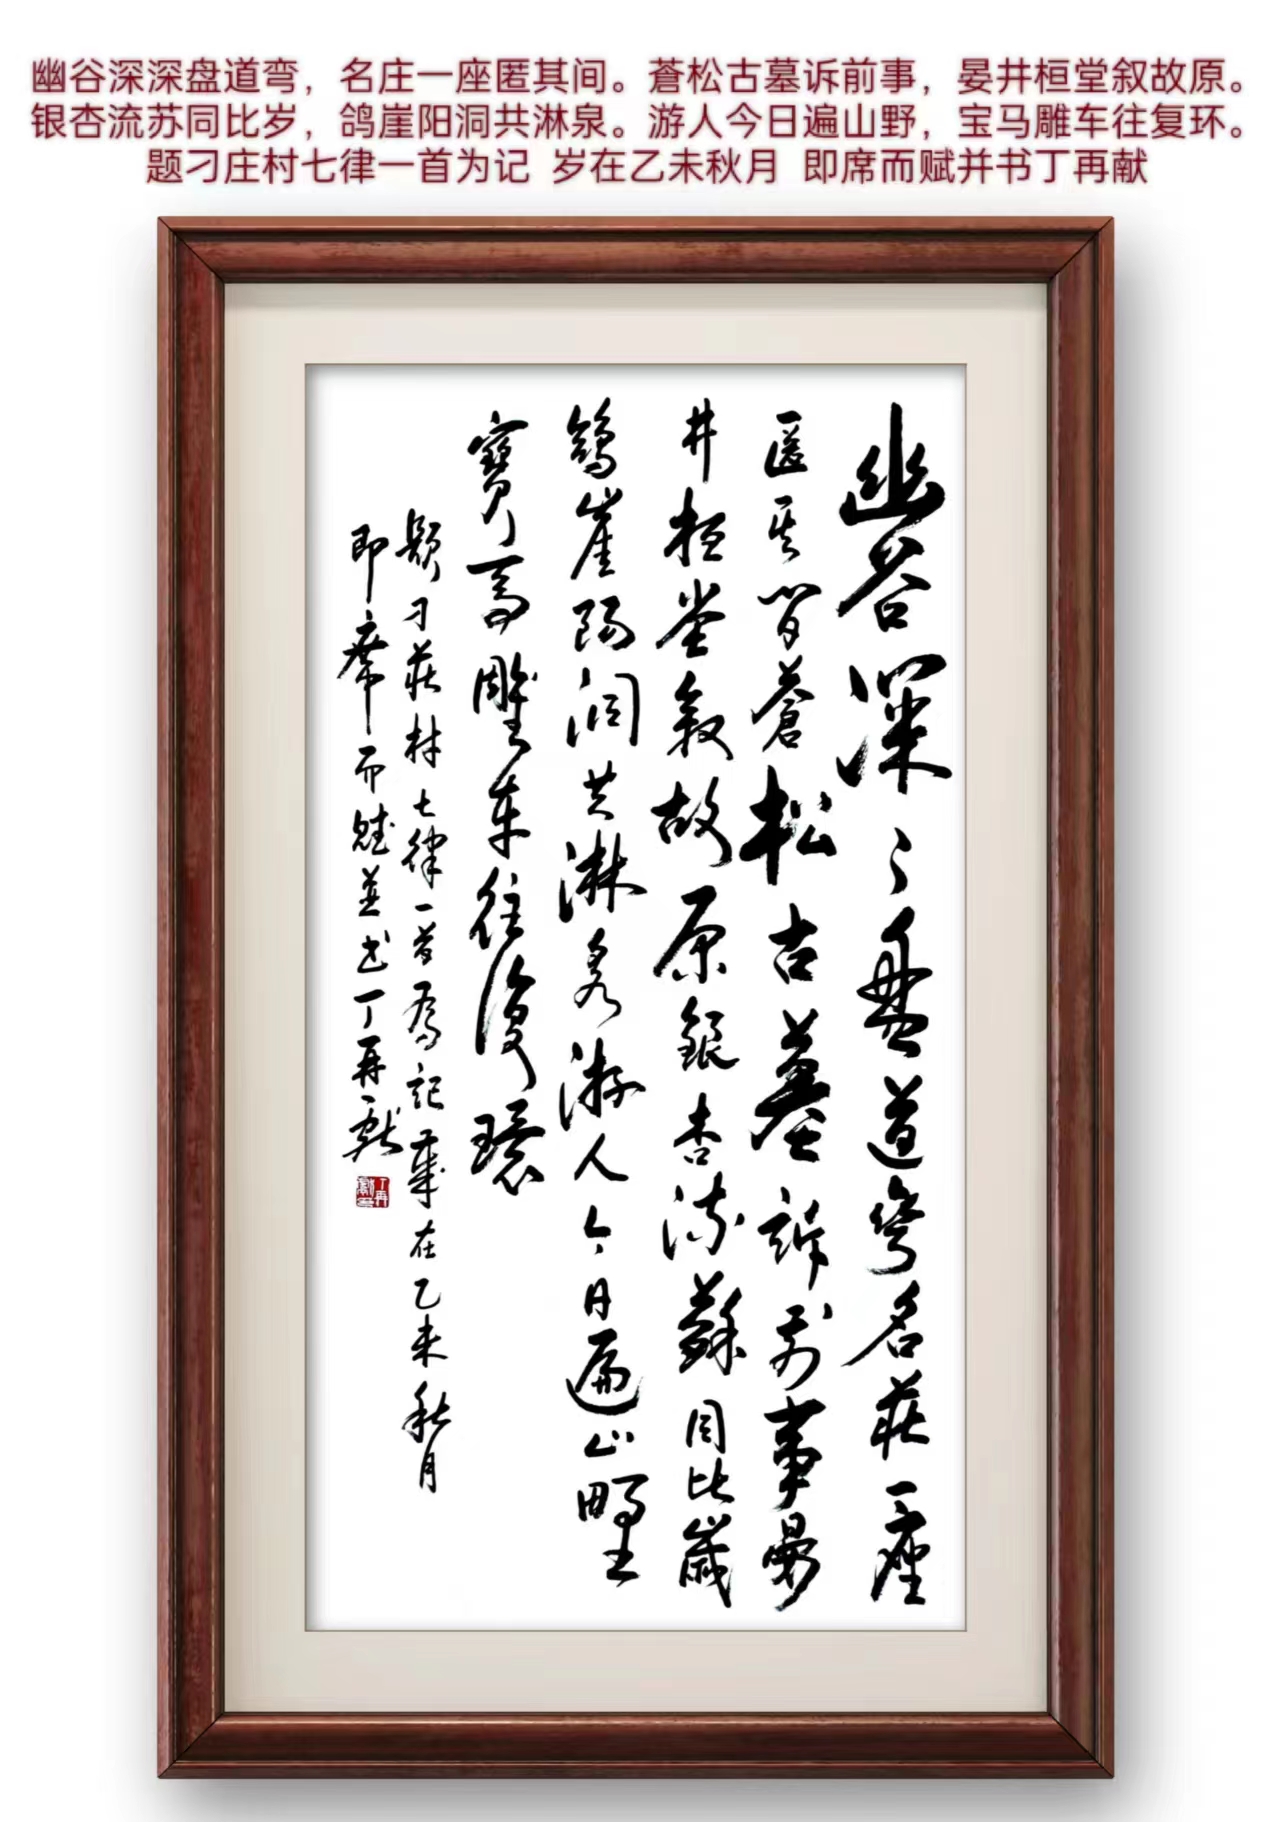 幽谷深深盘道弯，名庄一座匿其间。蒼松古墓诉前事，晏井桓堂叙故原。
银杏流苏同比岁，鸽崖阳洞共淋泉。游人今日遍山野，宝马雕车往复环。
题刁庄村七律一首为记 岁在乙未秋月 即席而赋并书丁再献
幽谷深〻盘道彎名莊一座
匿其间蒼松古墓訴前事晏
井桓堂叙故原銀杏流蘇同比歲
鴿崖陽洞共淋泉游人今日遍山野
寶馬雕車往復環
題刁莊村七律一首為記歲在乙未秋月
即席而賦並书丁再献
丁再獻